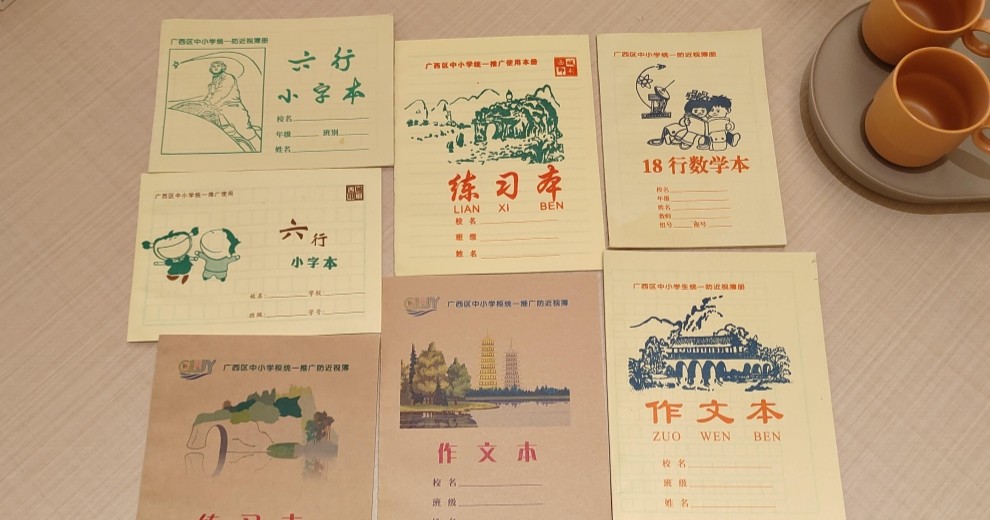 广西区中小学统一防近视簿册
六行
小字本
校名
年级 班别
姓名
广西区中小学统一推广使用本册
练习本
LIAN XI BEN
校名
班级
姓名
广西区中小学统一防近视簿册
18行数学本
校名
年级
姓名
教师
组号 座号
广西区中小学统一推广使用
六行
小字本
姓名: 学校:
班级: 学号:
广西区中小学校统一推广防近视簿
练习本
广西区中小学校统一推广防近视簿
作文本
校名
班级
广西区中小学生统一防近视簿册
作文本
ZUO WEN BEN
校名
班级
姓名